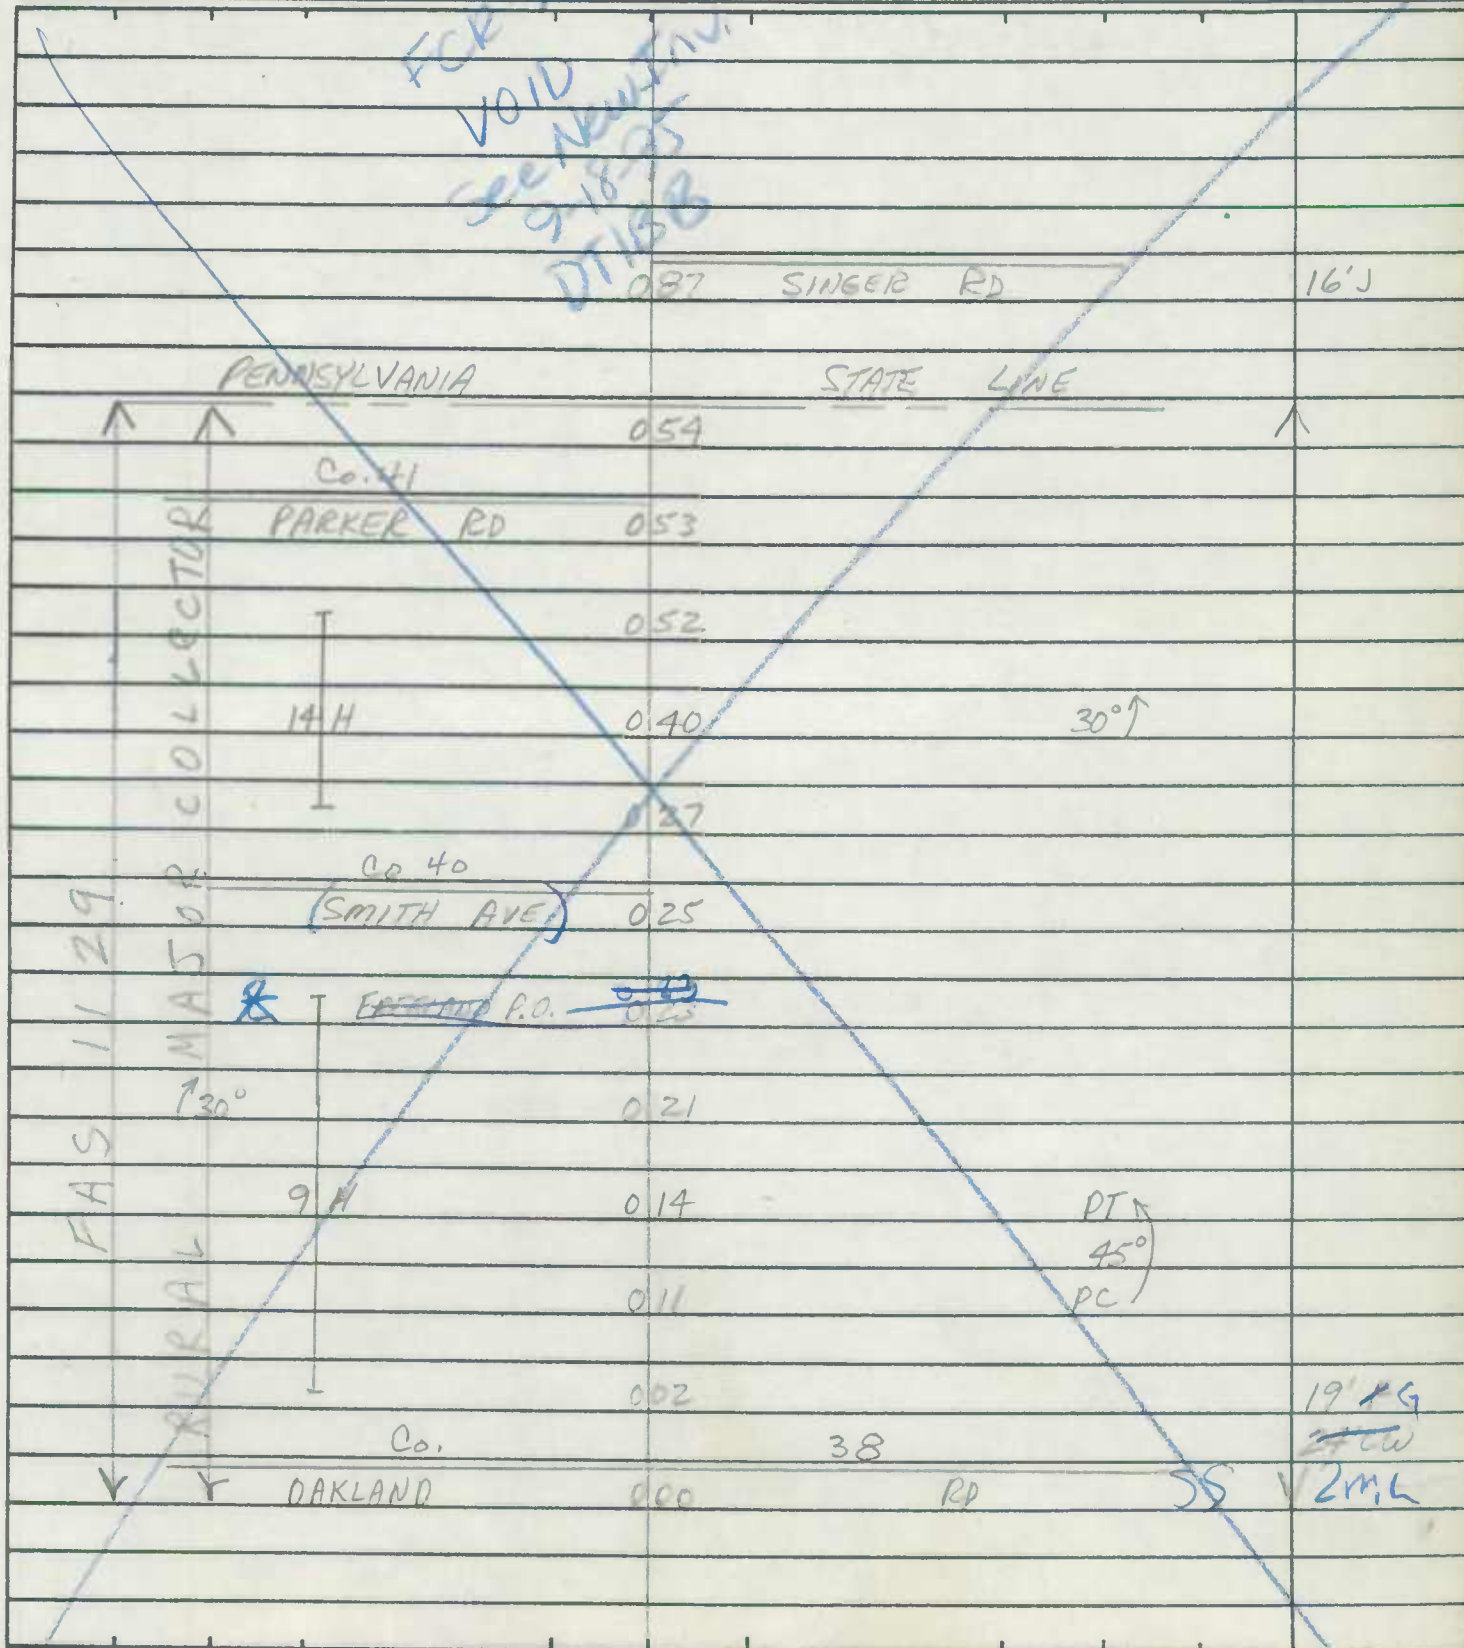 FCR
VOID
See New Inv.
9-18-95
DTHBB
0.87 SINGER RD 16'J
PENNSYLVANIA STATE LINE
0.54
Co. 41
PARKER RD 0.53
0.52
14 H 0.40 30°
0.27
Co 40
(SMITH AVE) 0.25
FREELAND P.O. 0.23
30° 0.21
9 H 0.14 PT
45°
0.11 PC
0.02 19' G
Co. 38
OAKLAND 0.00 RD SS 2mL
FAS 1129
RURAL MAJOR COLLECTOR